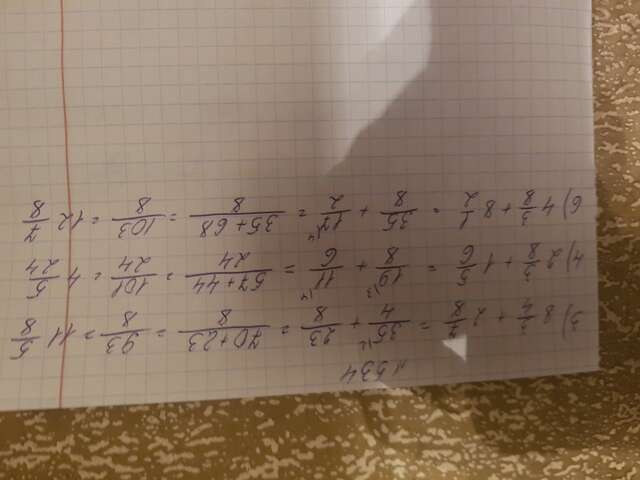 №534
3) 8 3/4 + 2 7/8 = 35/4 ⁾² + 23/8 = 70+23/8 = 93/8 = 11 5/8
4) 2 3/8 + 1 5/6 = 19/8 ⁾³ + 11/6 ⁾⁴ = 57+44/24 = 101/24 = 4 5/24
6) 4 3/8 + 8 1/2 = 35/8 + 17/2 ⁾⁴ = 35+68/8 = 103/8 = 12 7/8